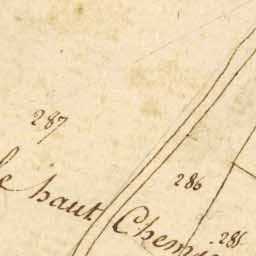 287
286
le haut Chemin
285